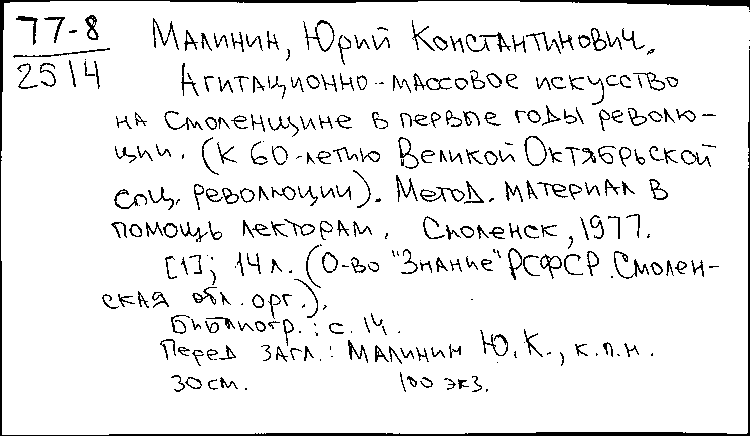 77-8
2514
Малинин, Юрий Константинович.
Агитационно-массовое искусство
на Смоленщине в первые годы револю-
ции. (К 60-летию Великой Октябрьской
соц. революции). Метод. материал в
помощь лекторам. Смоленск, 1977.
[1]; 14 л. (О-во "Знание" РСФСР. Смолен-
ская обл. орг.).
Библиогр.: с. 14.
Перед загл.: Малинин Ю. К., к.п.н.
30 см. 100 экз.